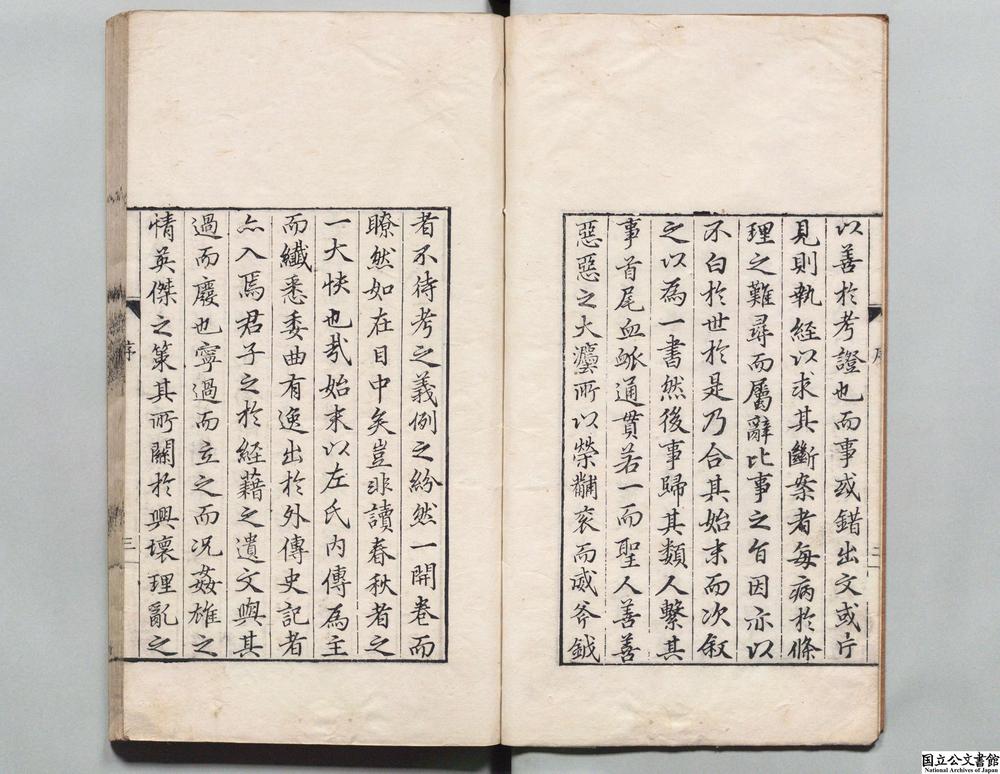 以善於考證也而事或錯出文或片
見則執經以求其斷案者每病於條
理之難尋而屬辭比事之旨因亦以
不白於世於是乃合其始末而次叙
之以為一書然後事歸其類人繫其
事首尾血脈通貫若一而聖人善善
惡惡之大灋所以榮黼袞而威斧鉞
二
者不待考之義例之紛然一開卷而
瞭然如在目中矣豈非讀春秋者之
一大快也㢤始末以左氏內傳為主
而纖悉委曲有逸出於外傳史記者
亦入焉君子之於經藉之遺文與其
過而廢也寧過而立之而况姦雄之
情英傑之策其所關於興壞理亂之
序
三
国立公文書館
National Archives of Japan